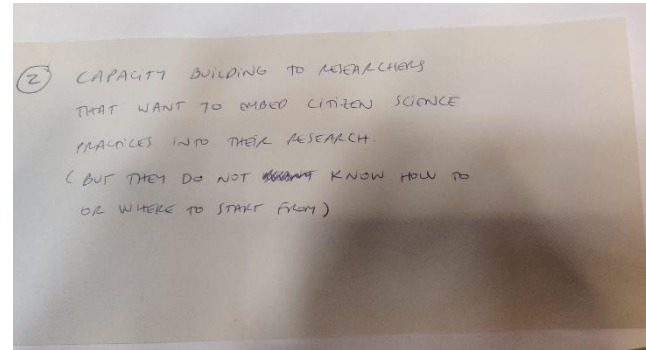 2 CAPACITY BUILDING TO RESEARCHERS
THAT WANT TO EMBED CITIZEN SCIENCE
PRACTICES INTO THEIR RESEARCH.
(BUT THEY DO NOT KNOW HOW TO
OR WHERE TO START FROM)